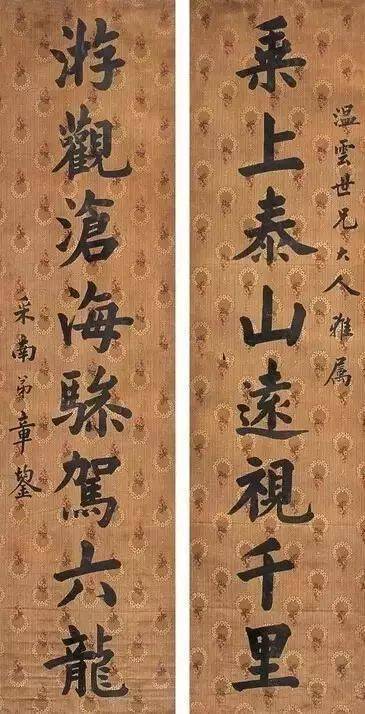 温雲世兄大人雅属
乗上泰山遠視千里
游觀滄海驂駕六龍
采南弟章鋆